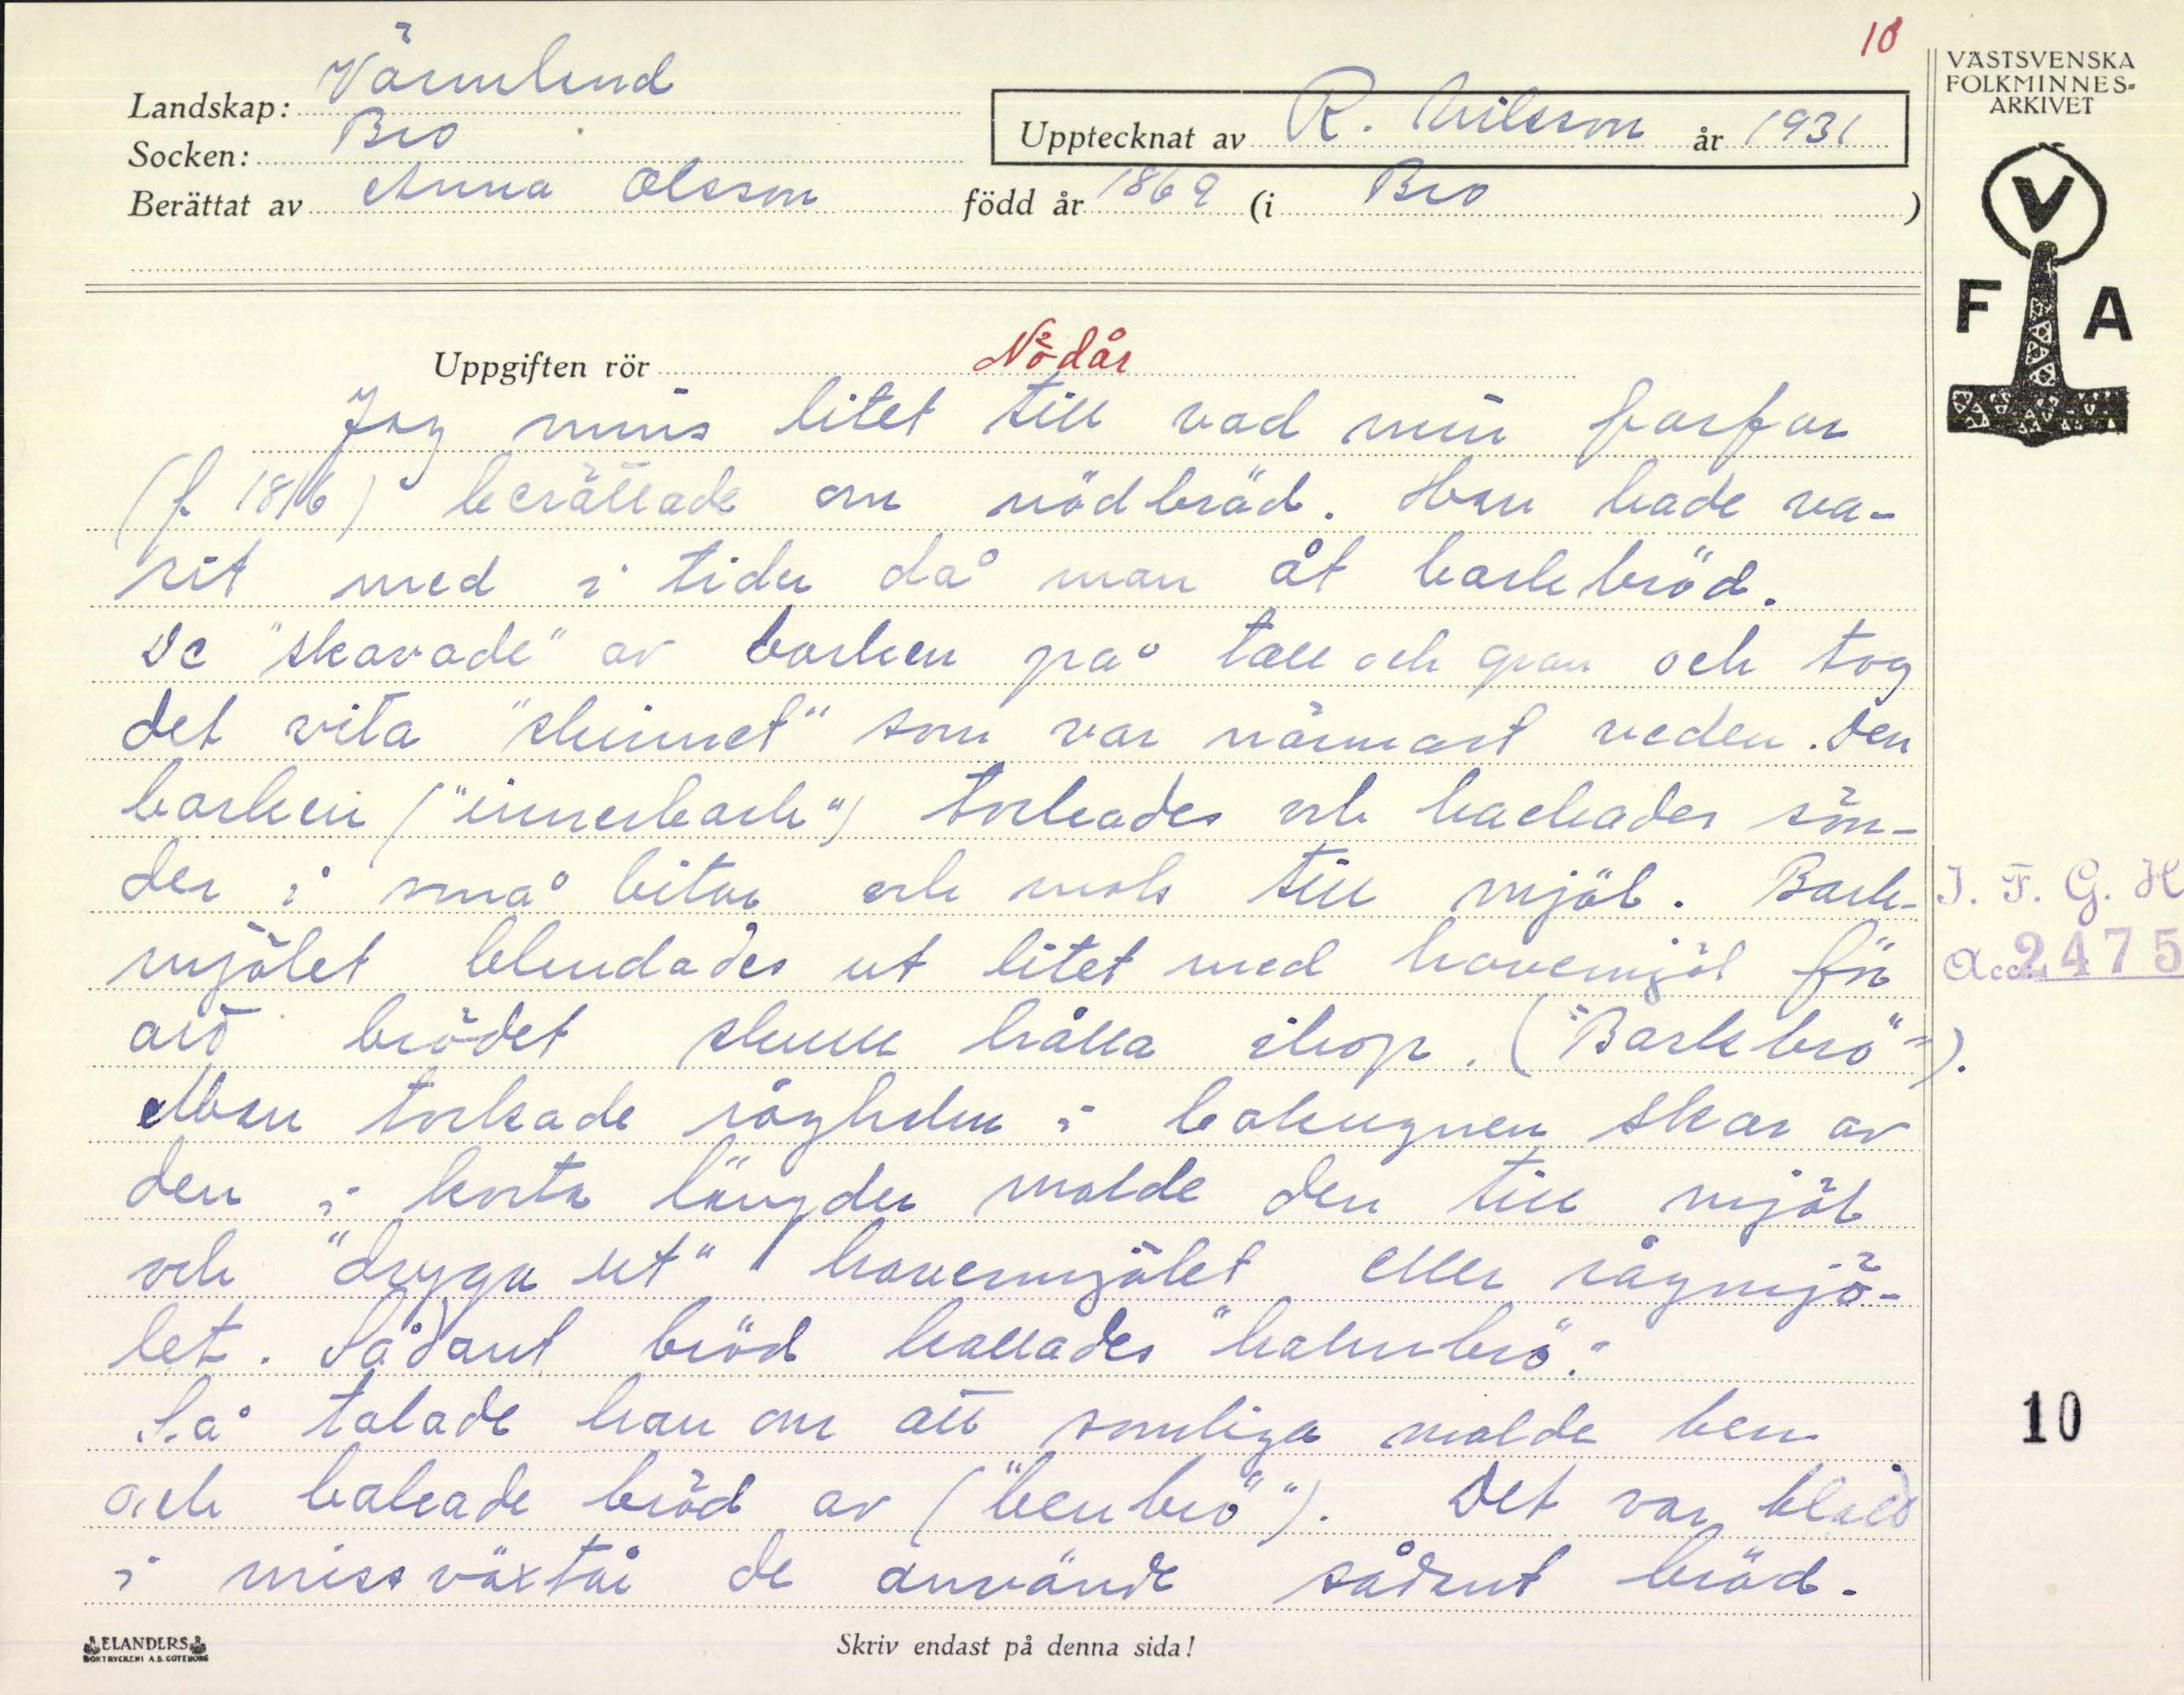 10
VÄSTSVENSKA
FOLKMINNES-
ARKIVET
Landskap: Värmland
Socken: Bro
Upptecknat av R. Nilsson år 1931
Berättat av Anna Olsson född år 1869 (i Bro )
V
F A
Uppgiften rör Nödår
Jag mins litet till vad min farfar
(f. 1816) berättade om nödbröd. Han hade va-
rit med i tider då man åt barkbröd.
De "skavade" av barken på tall och gran och tog
det vita "skinnet" som var närmast veden. Den
barken ("innerbark") torkades och hackades sön-
der i små bitar och mals till mjöl. Bark-
mjölet blendades ut litet med havremjöl för
att brödet skulle hålla ihop. ("Barkbrö").
Man torkade råghalm i bakugnen skar av
den i korta längder malde den till mjöl
och "dryga ut" havremjölet eller rågmjö-
let. Sådant bröd kallades "halmbrö".
Så talade han om att somliga malde ben
och bakade bröd av ("benbrö"). Det var blott
i missväxtår de använde sådant bröd.
I. F. G. H
Acc. 2475
10
ELANDERS
BOKTRYCKERI A.B. GÖTEBORG
Skriv endast på denna sida!